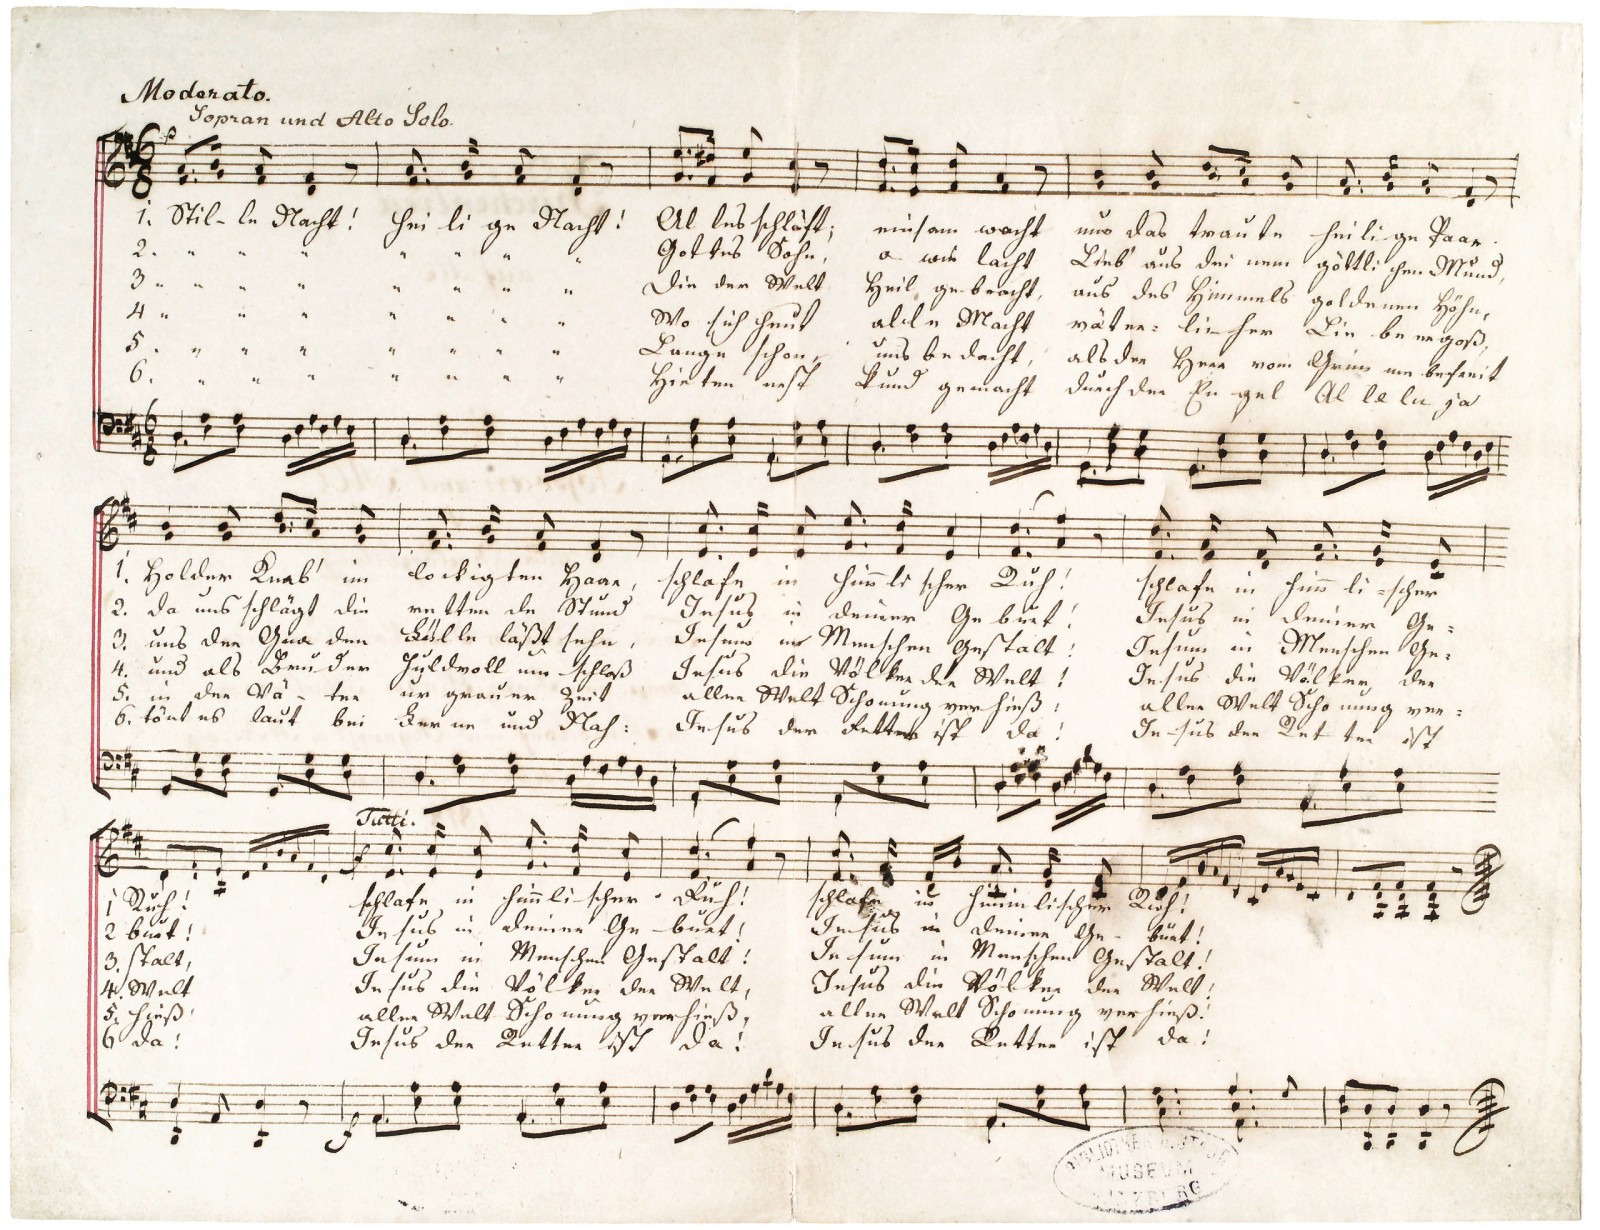 Moderato.
Sopran und Alto Solo.
1. Stil-le Nacht! Hei li ge Nacht! Al les schläft; einsam wacht nur das traute heili-ge Paar.
2. " " " " " " " Gottes Sohn, o wie lacht Lieb' aus dei nem göttli chen Mund,
3 " " " " " " " " Die der Welt Heil ge-bracht, aus des Himmels goldenen Höhn,
4 " " " " " " " Wo sich heut alle Macht väter= li- her Lie be ergoß,
5. " " " " " " " " Lange schon, uns bedacht, als der Herr vom Grim me befreit
6. " " " " " " " Hirten erst kund gemacht durch der En gel Al le lu ja
1. Holder Knab' im lockigten Haar, schlafe in him̅li scher Ruh! schlafe in him̅ li =scher
2. da uns schlägt die retten de Stund Jesus in deiner Ge burt! Jesus in deiner Ge=
3. uns der Gna den Fülle läßt sehn, Jesum in Menschen Gestalt! Jesum in Menschen Ge=
4. und als Bru der huldvoll um schloß Jesus die Völker der Welt! Jesus die Völker der
5. in der Vä - ter ur grauer Zeit aller Welt Schonung verhieß: aller Welt Scho nung ver=
6. tönt es laut bei Ferne und Nah: Jesus der Retter ist da! Je-sus der Ret ter ist
Tutti.
1 Ruh! schlafe in him̅li-scher Ruh! schlafe in himmlischer Ruh!
2 burt! Jesus in deiner Ge-burt! Jesus in deiner Ge- burt!
3. stalt, Jesum in Menschen Gestalt! Jesum in Menschen Gestalt!
4. Welt Jesus die Völker der Welt, Jesus die Völker der Welt!
5. hieß! aller Welt Schonung verhieß, aller Welt Schonung verhieß!
6 da! Jesus der Retter ist da! Jesus der Retter ist da!
MUSEUM